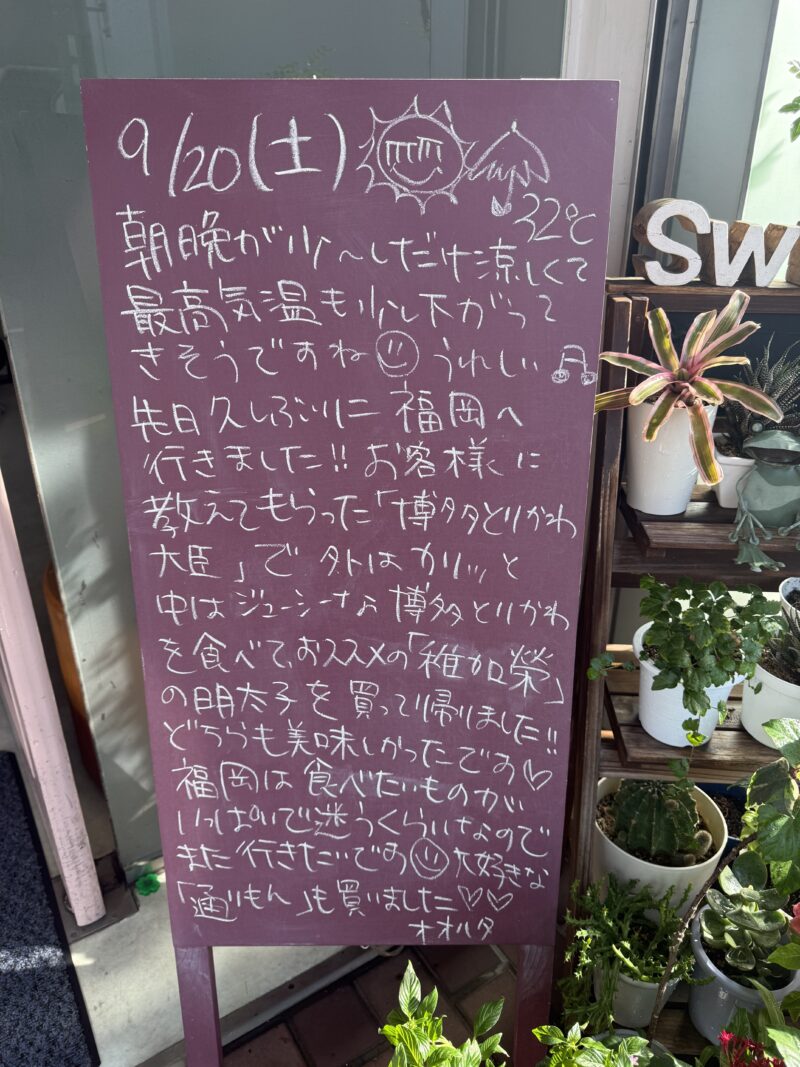 9/20(土)
32℃
朝晩が少〜しだけ涼しくて
最高気温も少し下がって
きそうですね うれしい♫
先日久しぶりに福岡へ
行きました!! お客様に
教えてもらった「博多とりかわ
大臣」で 外はカリッと
中はジューシーな博多とりかわ
を食べて、おススメの「稚加榮」
の明太子を買って帰りました!!
どちらも美味しかったです♡
福岡は食べたいものが
いっぱいで迷うくらいなので
また行きたいです 大好きな
「通りもん」も買いました♡♡
オオハタ
SW